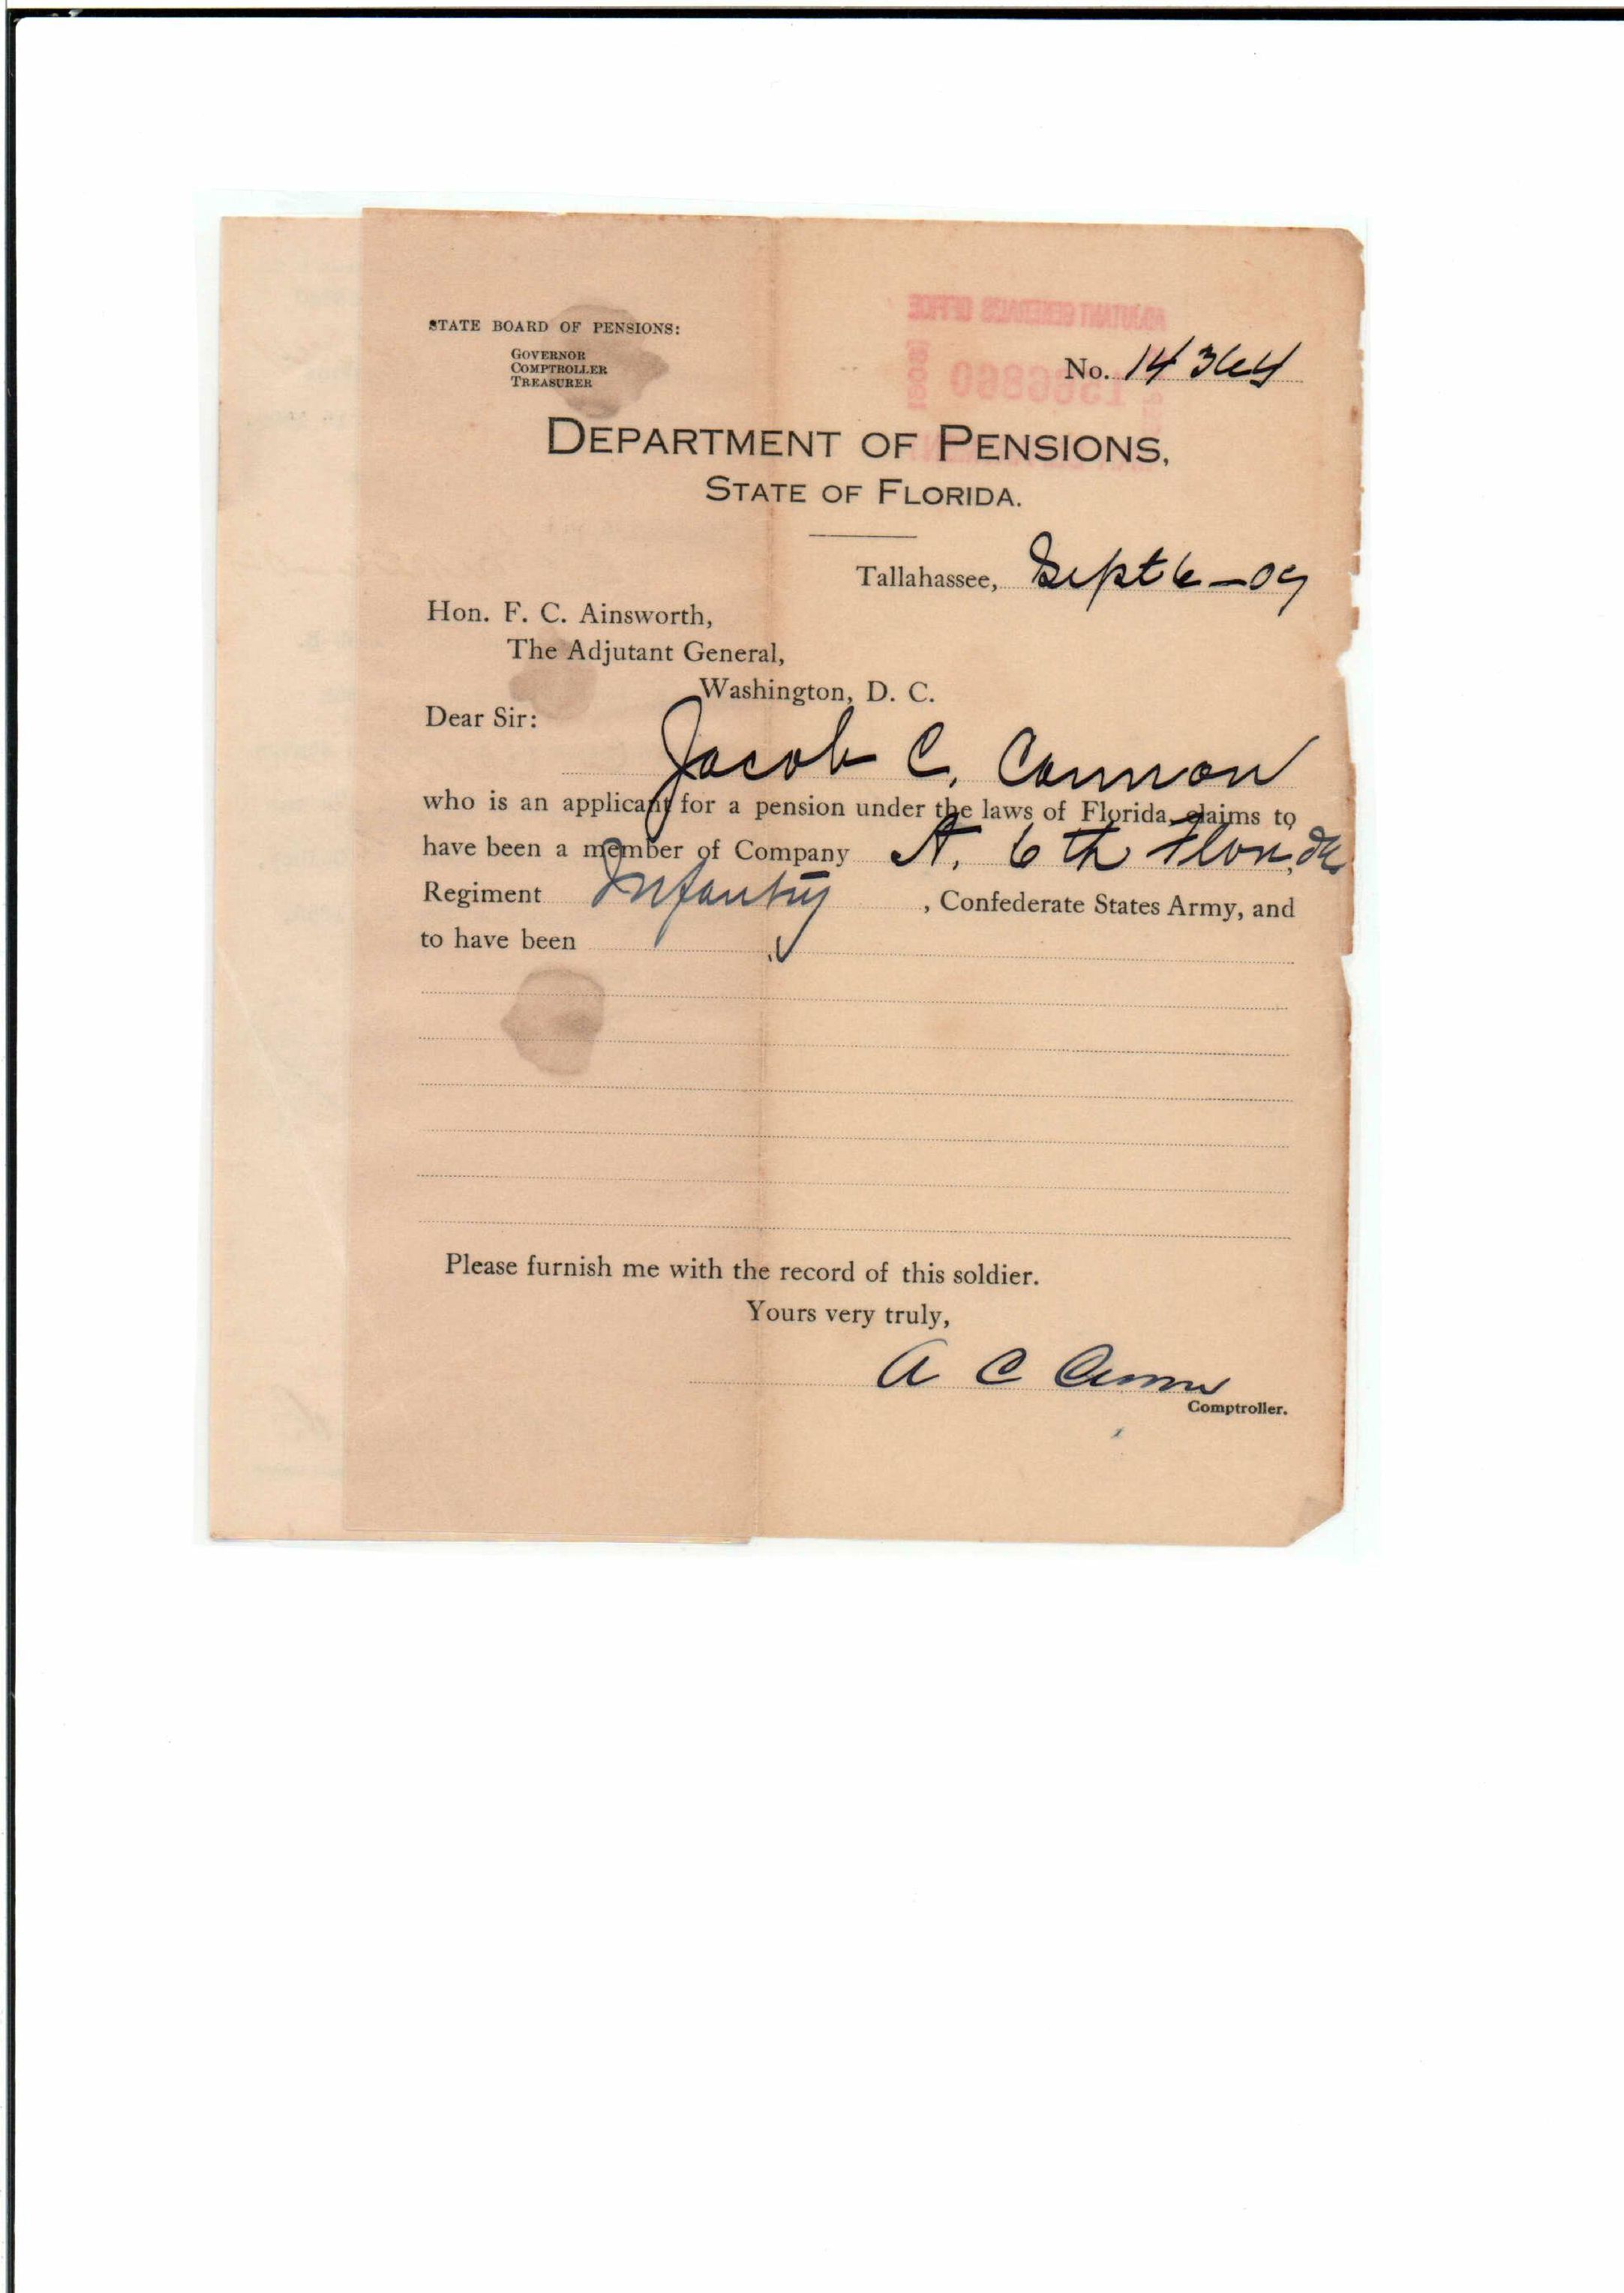 STATE BOARD OF PENSIONS:
GOVERNOR
COMPTROLLER
TREASURER
ADJUTANT GENERAL'S OFFICE
No. 14364
DEPARTMENT OF PENSIONS,
STATE OF FLORIDA.
Tallahassee, Sept 6-09
Hon. F. C. Ainsworth,
The Adjutant General,
Washington, D. C.
Dear Sir:
Jacob C. Cannon
who is an applicant for a pension under the laws of Florida, claims to
have been a member of Company A. 6th Florida
Regiment Infantry, Confederate States Army, and
to have been
Please furnish me with the record of this soldier.
Yours very truly,
A C
Comptroller.